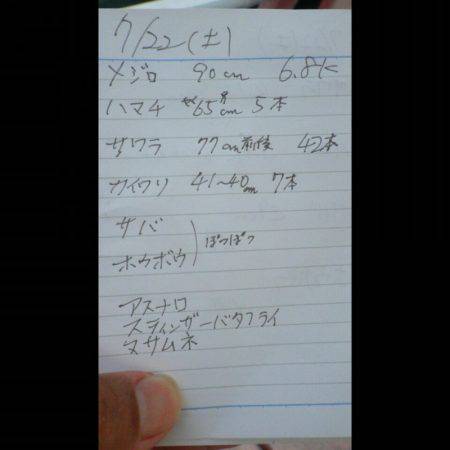 7/22(土)
メジロ 90cm 6.8K
ハマチ 65cm 5本
サワラ 77cm前後 42本
カイワリ 41~40cm 7本
サバ
ホウボウ ぽつぽつ
アスナロ
スティンガーバタフライ
マサムネ